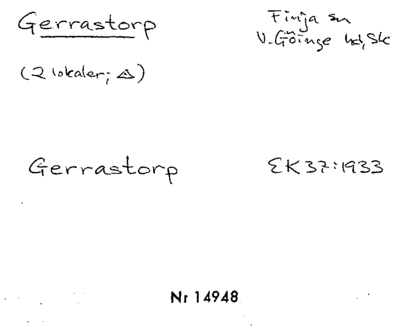 Gerrastorp
Finja sn
V. Göinge hd, Sk
(2 lokaler; △)
Gerrastorp
EK 37:1933
Nr 14948